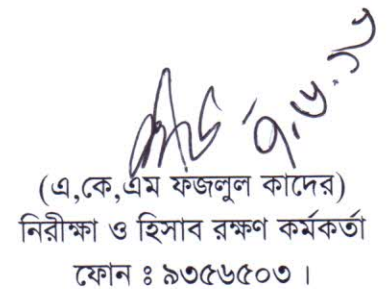 (এ,কে,এম ফজলুল কাদের)
নিরীক্ষা ও হিসাব রক্ষণ কর্মকর্তা
ফোন ঃ ৯৩৫৬৫০৩ ।